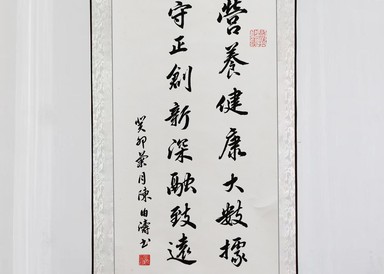 營養健康大數據
守正創新深融致遠
癸卯葉月陳由濤书